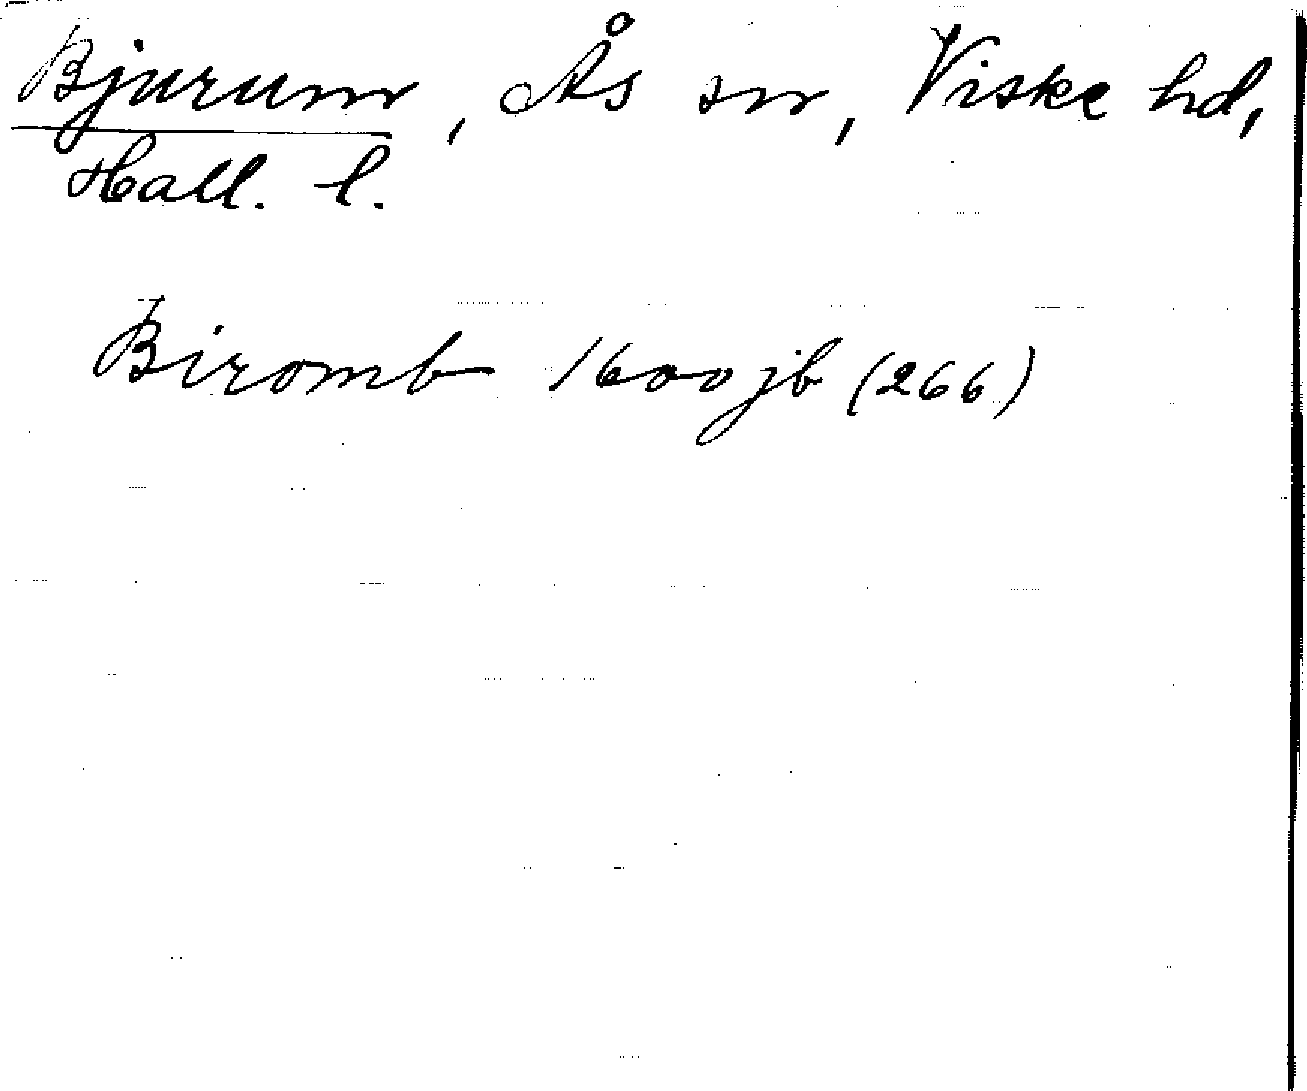 Bjurum, Ås sn, Viske hd,
Hall. l.
Biromb 1600 jb (266)